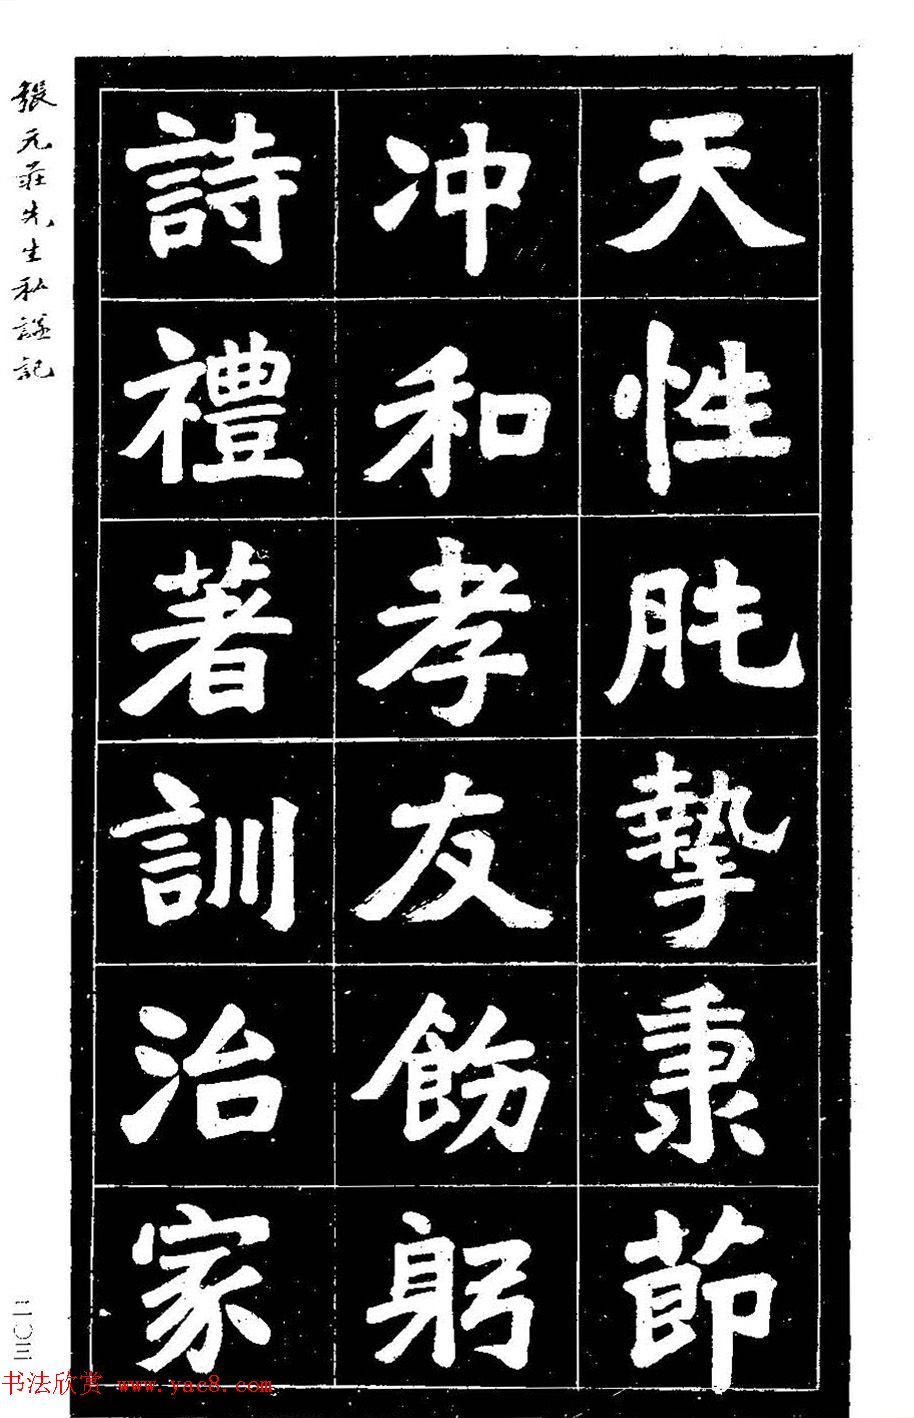 天性肫摯秉節
冲和孝友飭躬
詩禮著訓治家
張元莊先生私謚記
二〇三
书法欣赏 www.yac8.com